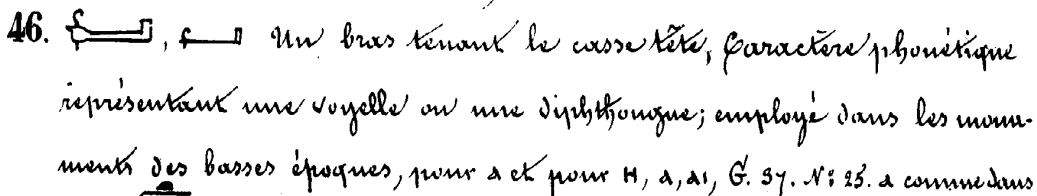 46. , Un bras tenant le casse tête, Caractère phonétique
représentant une voyelle ou une diphthongue; employé dans les monu-
ments des basses époques, pour A et pour H, A, AI, G. 37. N: 25. A comme dans